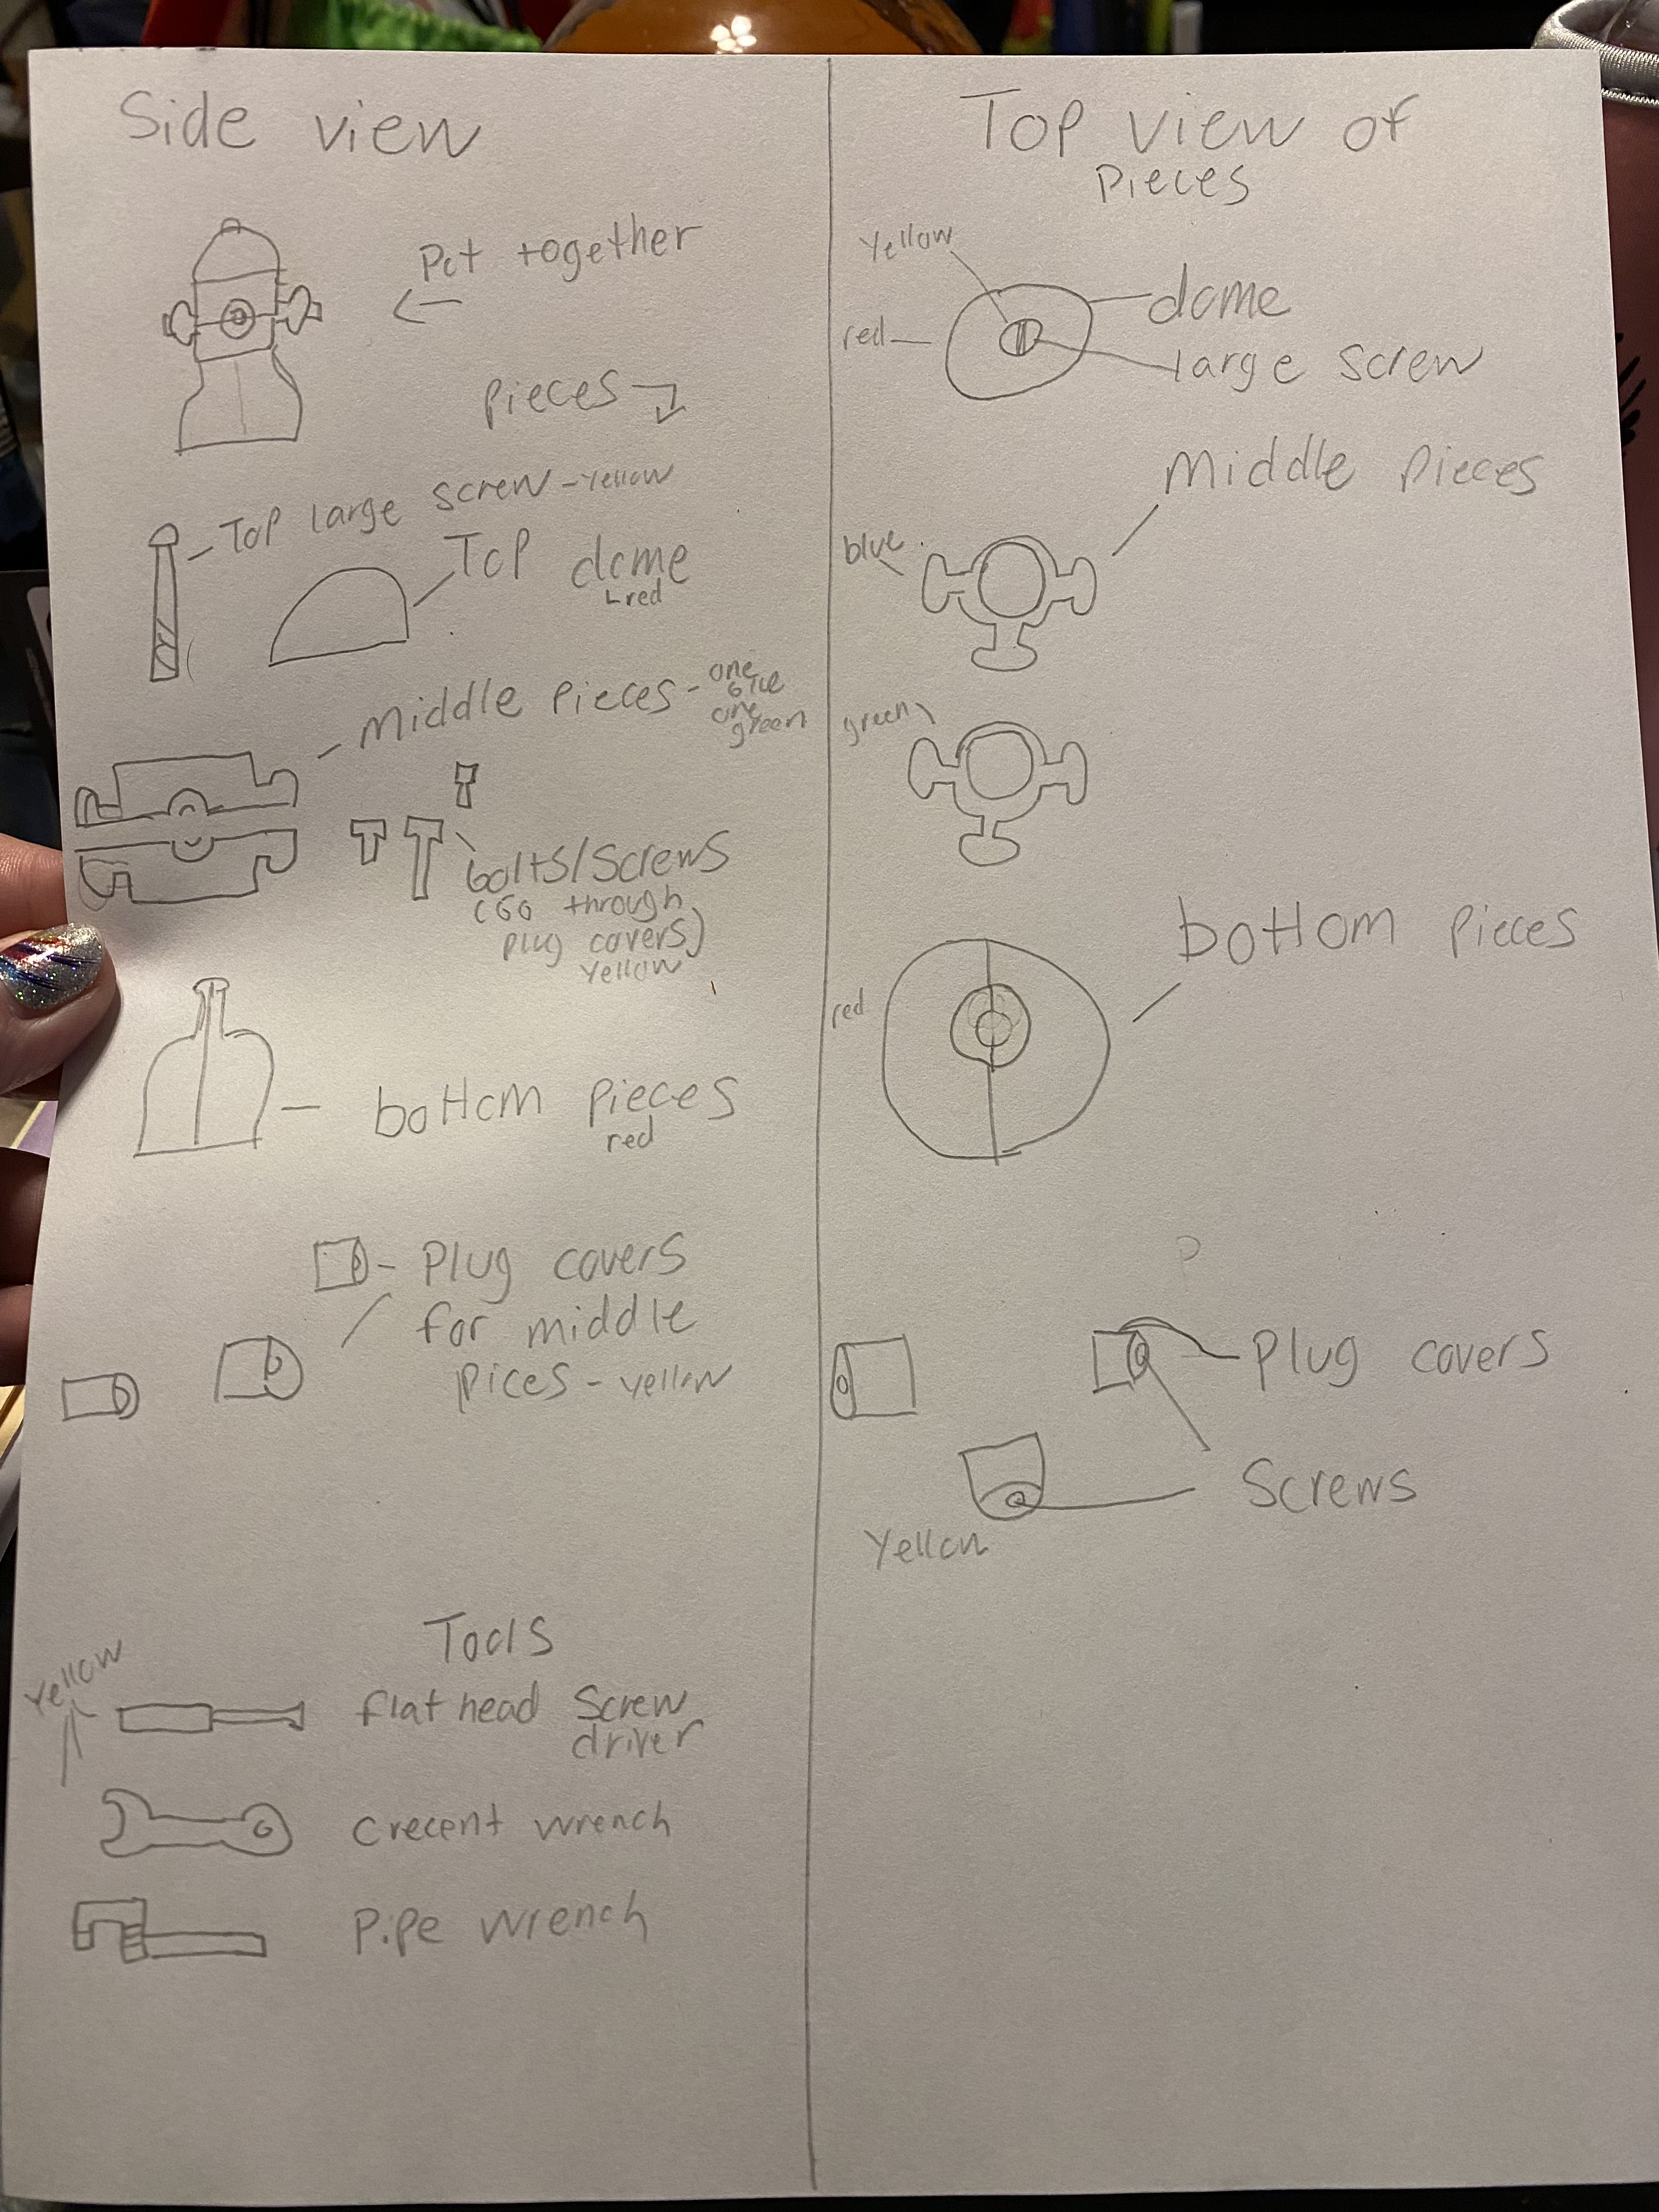 Side view
Put together
pieces
Top large screw - yellow
Top dome
red
Middle pieces - one
blue
one
green
bolts/screws
(Go through
plug covers)
yellow
bottom pieces
red
Plug covers
for middle
pices - yellow
Tools
yellow
flat head screw
driver
crecent wrench
pipe wrench
Top view of
pieces
yellow
dome
red
large screw
Middle pieces
blue
green
bottom pieces
red
P
Plug covers
Screws
Yellow